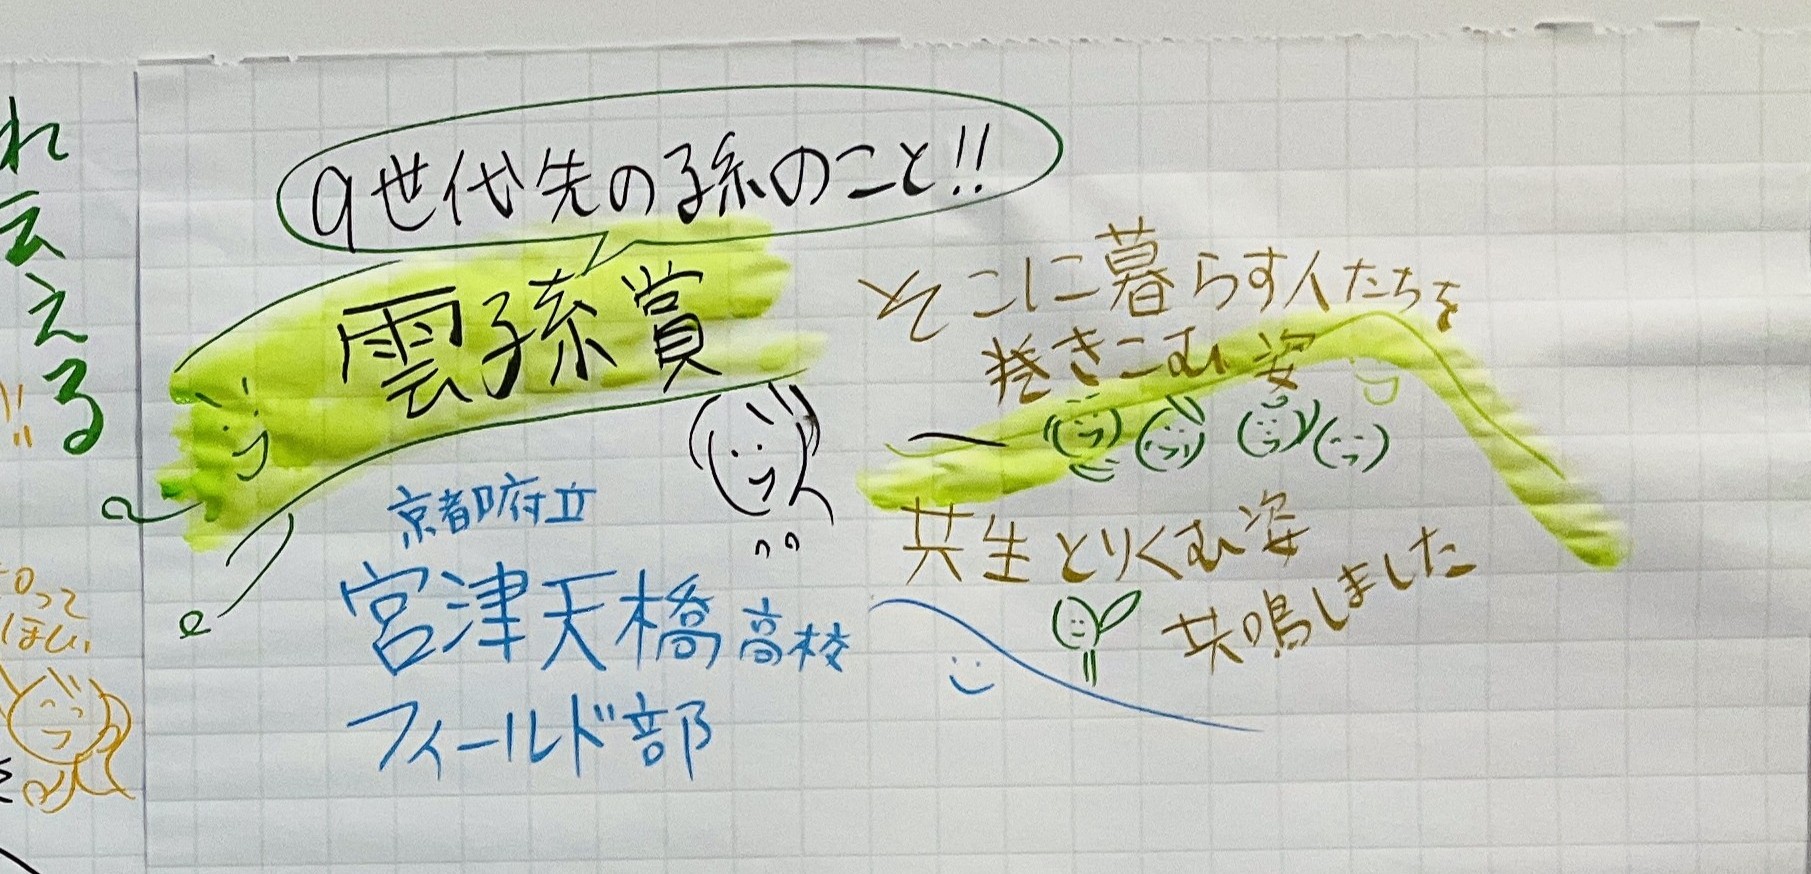 れ
云
え
る
!!
って
ほしい
9世代先の孫のこと!!
雲孫賞
京都府立
宮津天橋高校
フィールド部
そこに暮らす人たちを
巻きこむ姿
共生とりくむ姿
共鳴しました